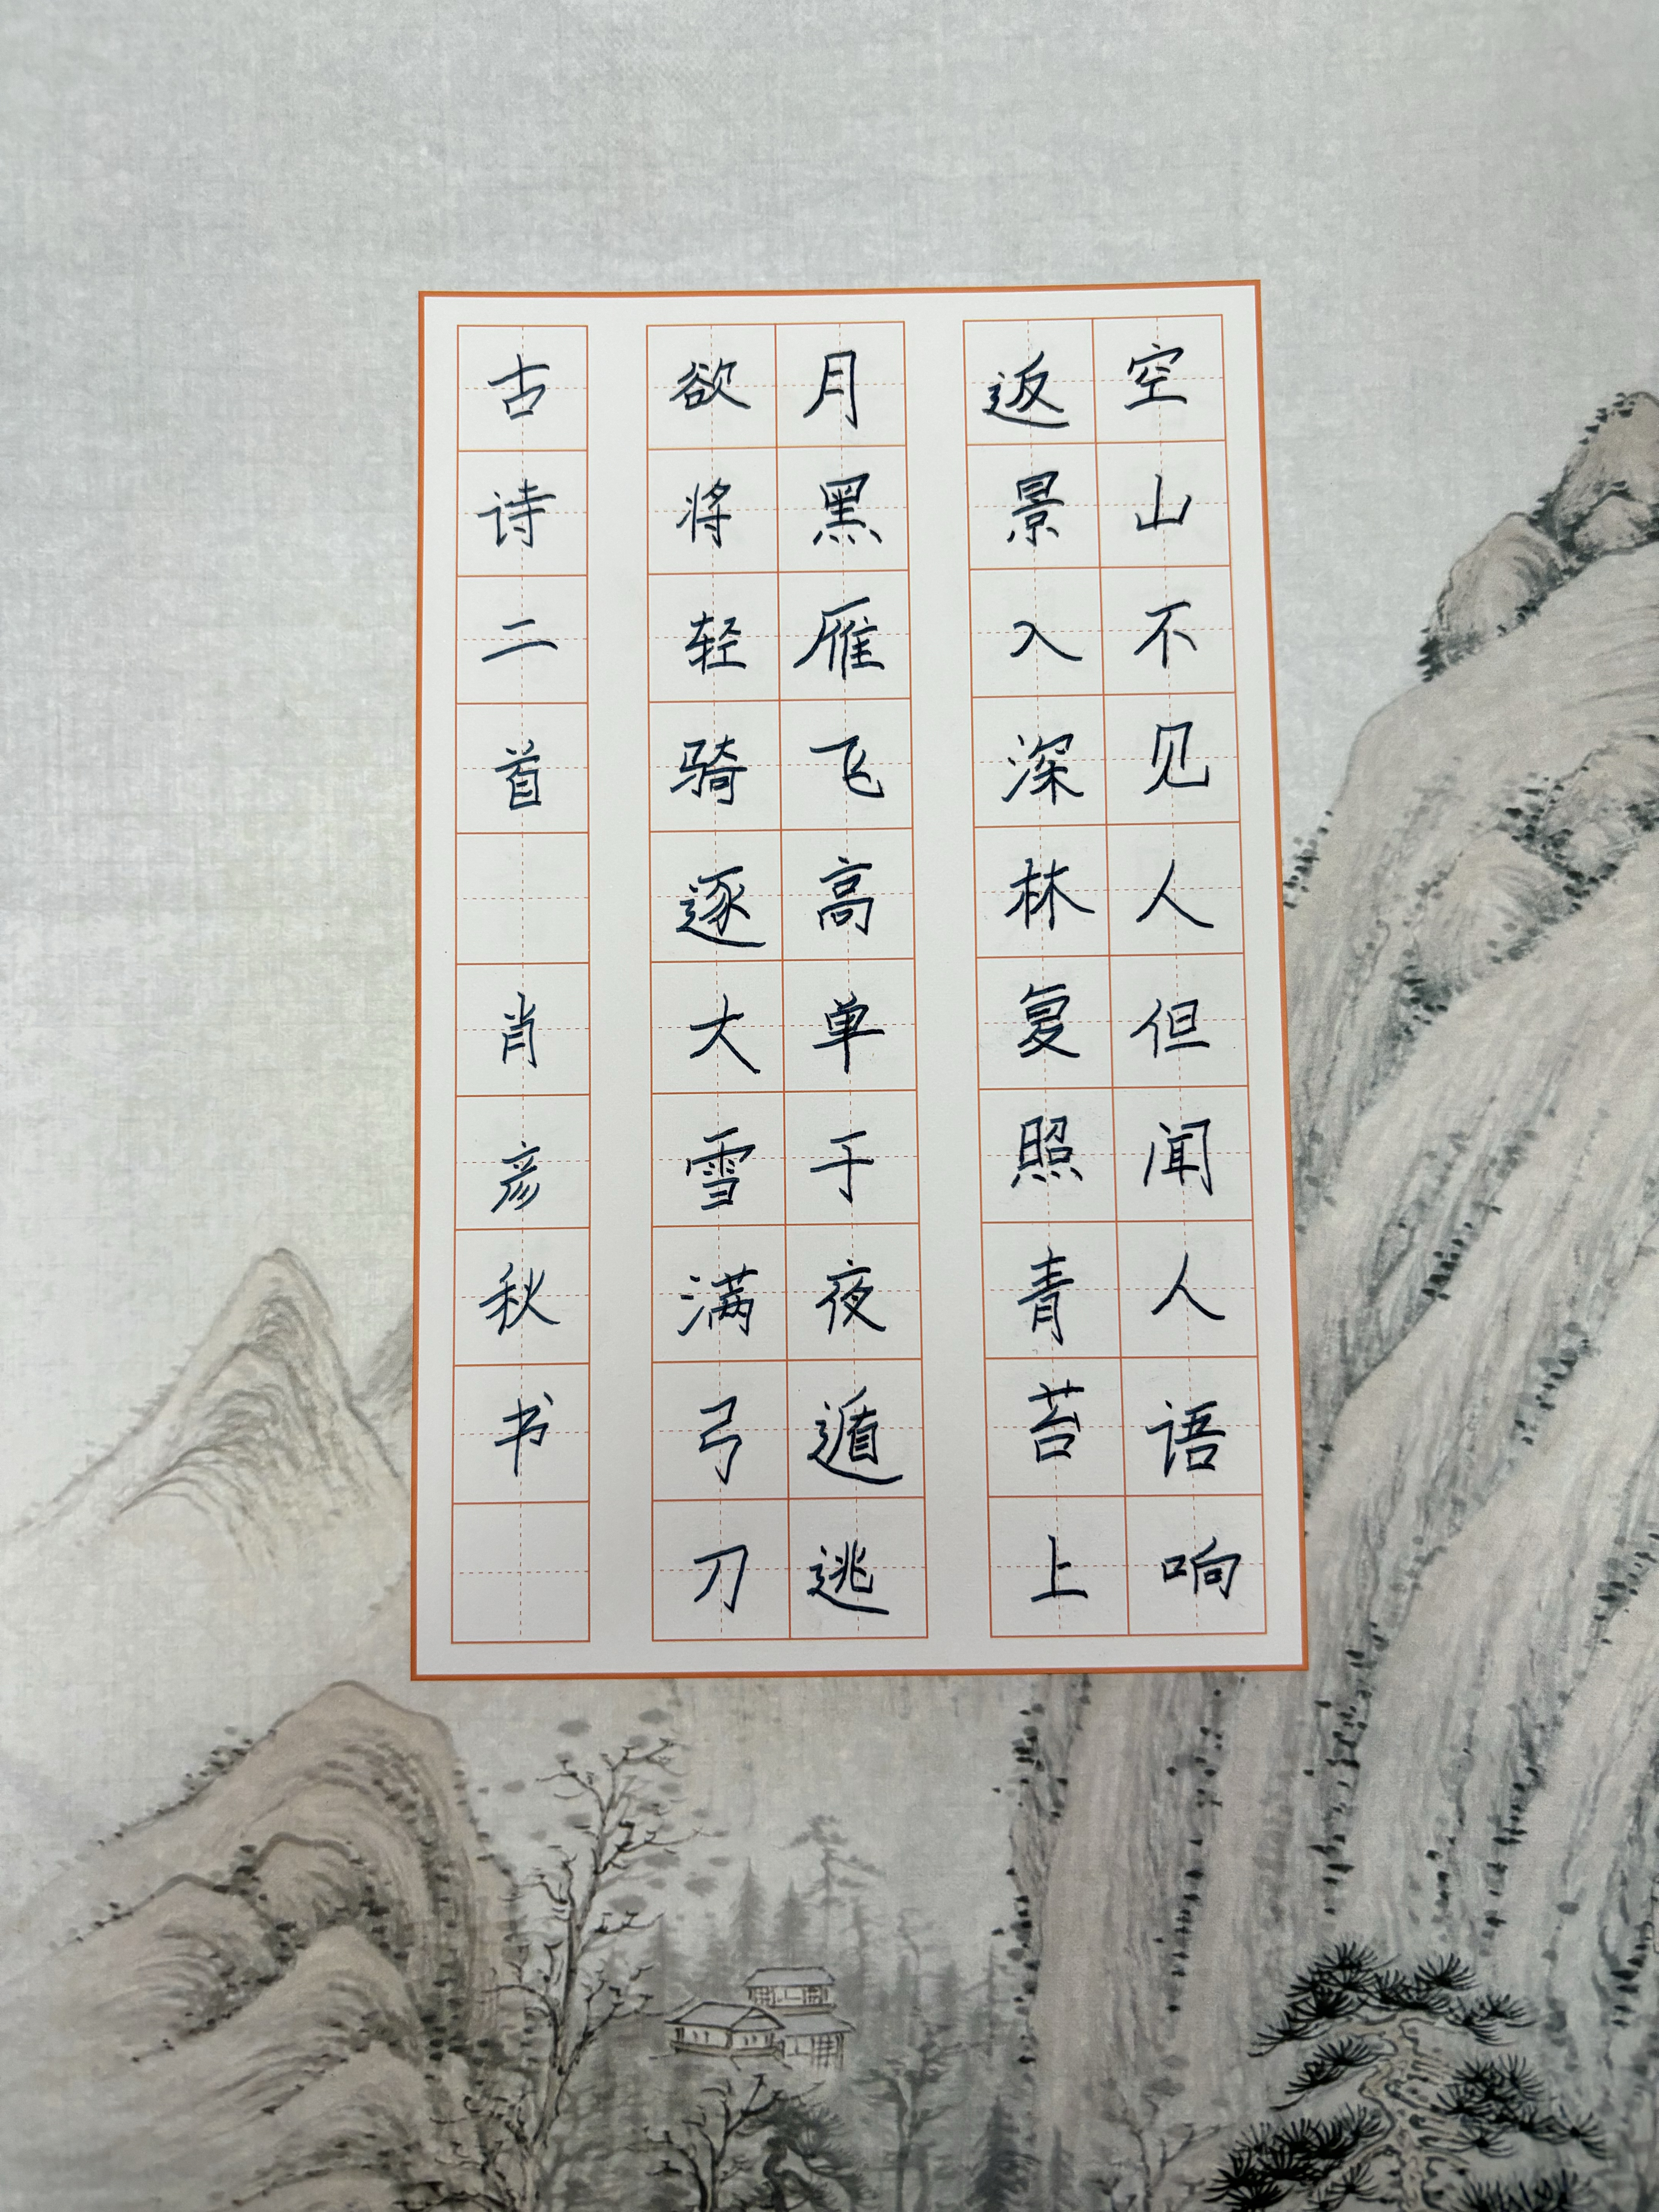 空山不见人但闻人语响
返景入深林复照青苔上
月黑雁飞高单于夜遁逃
欲将轻骑逐大雪满弓刀
古诗二首 肖彦秋书